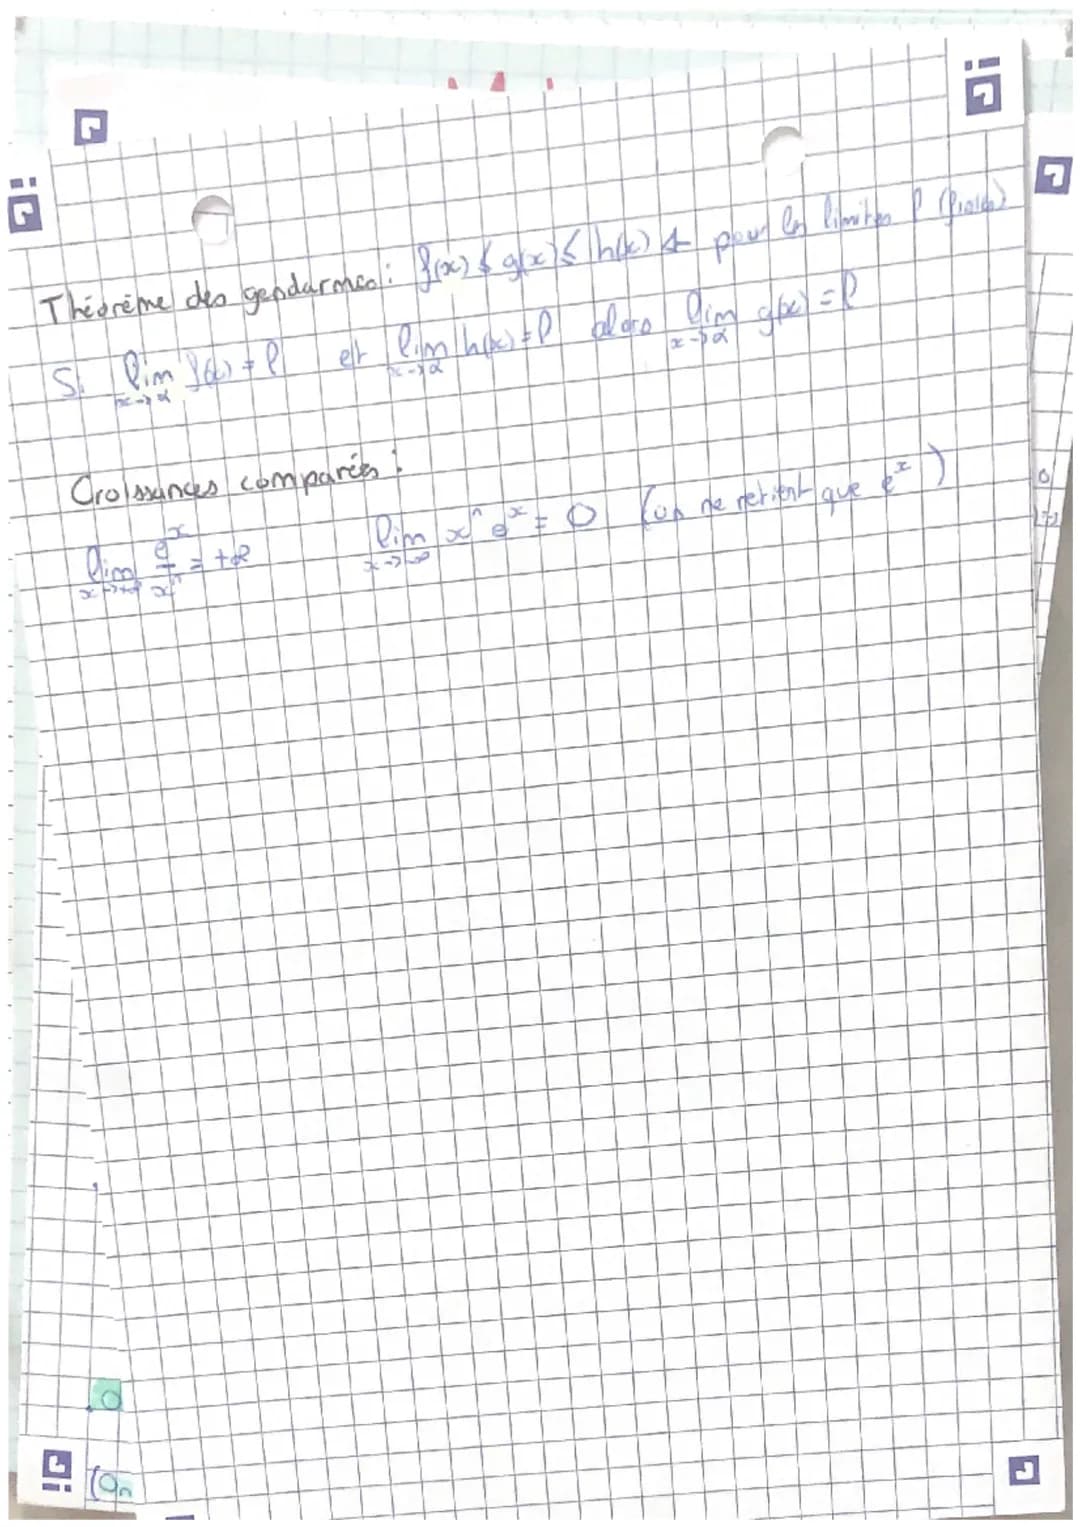 Théorème des gendarmes : f(x) ≤ g(x) ≤ h(x) pour les limites l (finies)
Si lim x→α f(x) = l et lim x→α h(x) = l alors lim x→α g(x) = l
Croissances comparées :
lim x→+∞ e^x/x^n = +∞ lim x→-∞ x^n e^x = 0 (on ne retient que e^x)
(on